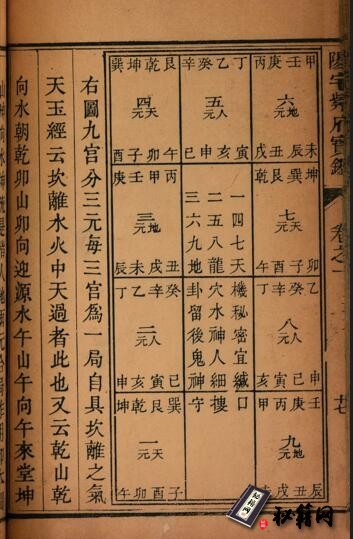 陽宅紫府寶鑑
卷之一
廿七
甲壬庚丙
六地元
未辰丑戌
乙丁癸辛
五人元
寅亥申巳
艮乾坤巽
四天元
午卯子酉
坤巽艮乾
七天元
卯子酉午
一四七天機秘密宜緘口
二五八龍穴水神人細摟
三六九地卦留後鬼神守
丙甲壬庚
三地元
丑戌未辰
八人元
二人元
巳寅亥申
九地元
巽艮乾坤
一天元
子酉卯午
右圖九宮分三元每三宮為一局自具坎離之氣
天玉經云坎離水火中天過者此也又云乾山乾
向水朝乾卯山卯向迎源水午山午向午來堂坤
秘籍网